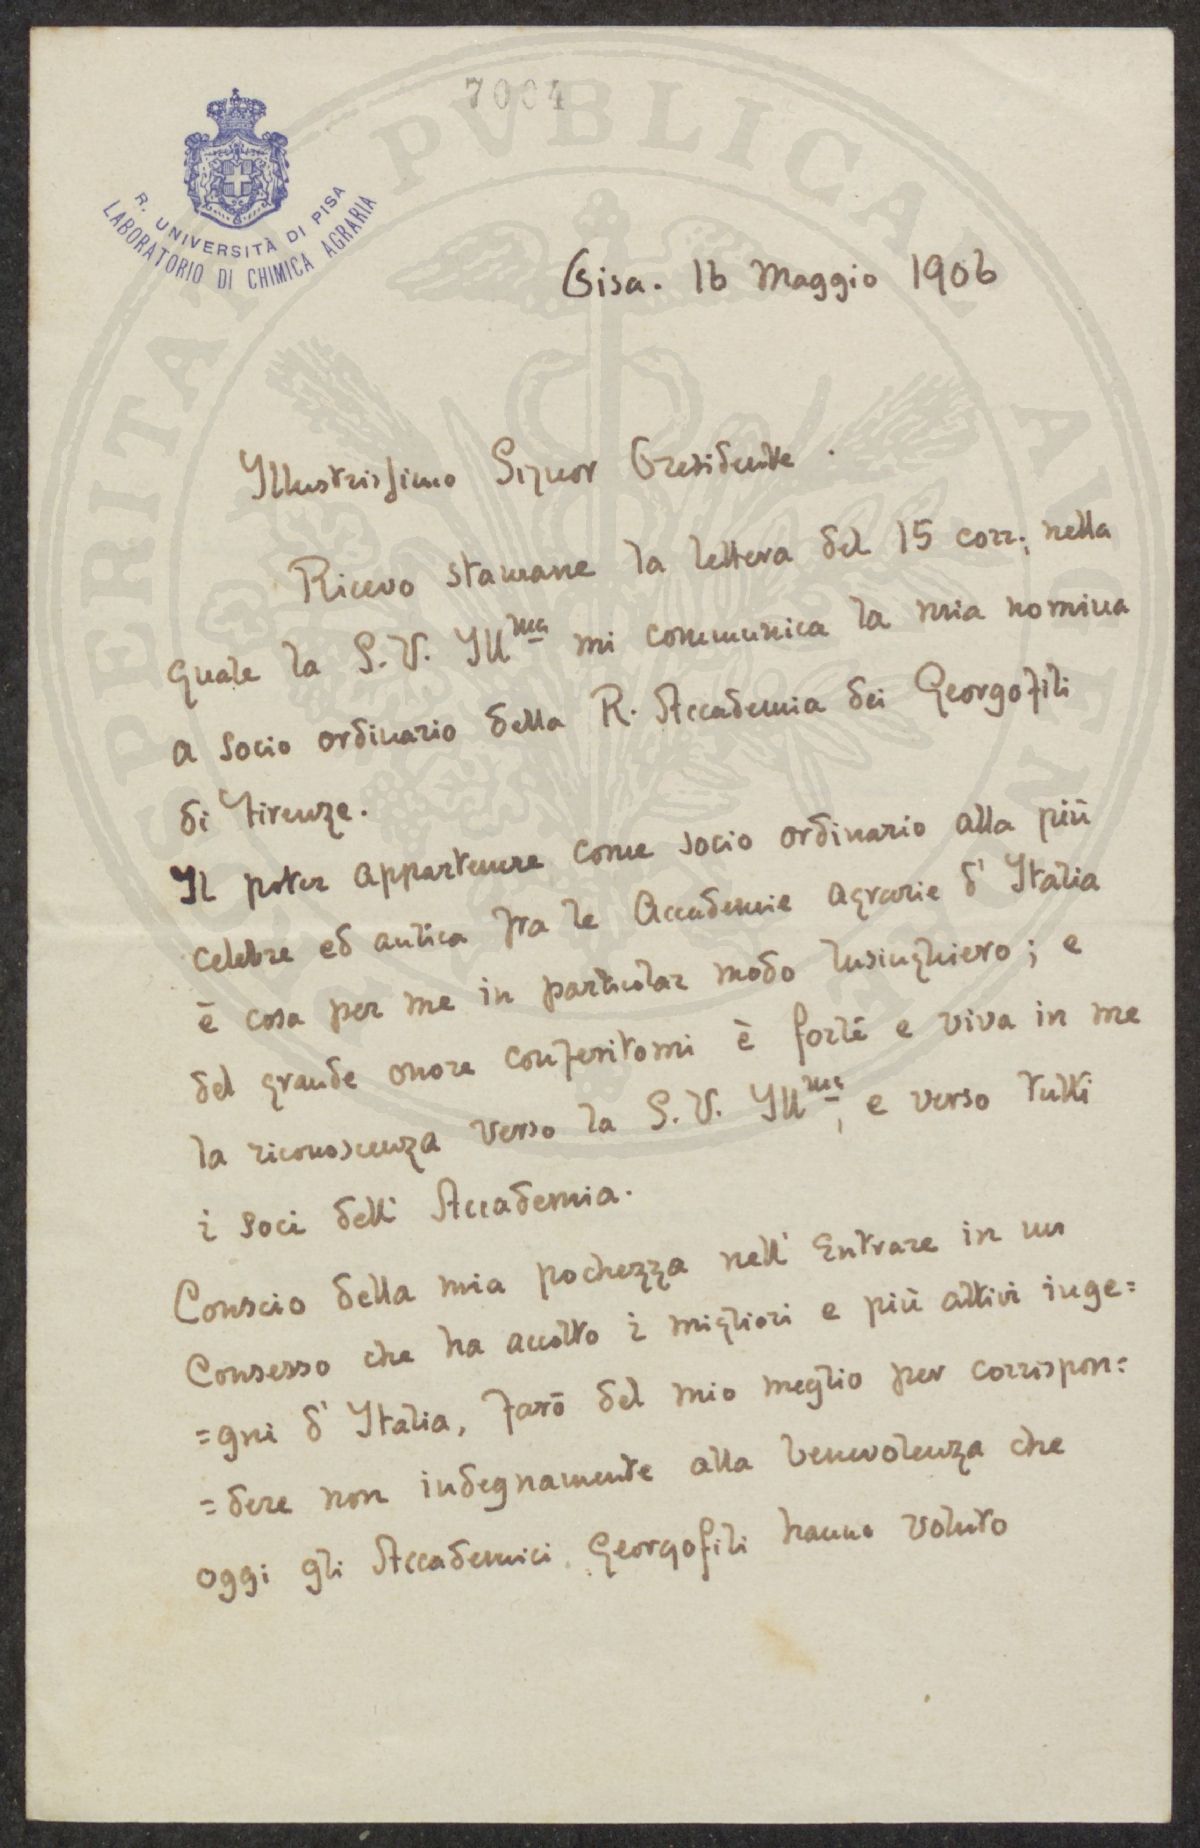 7004
R. UNIVERSITÀ DI PISA
LABORATORIO DI CHIMICA AGRARIA
Pisa. 16 Maggio 1906
Illustrissimo Signor Presidente.
Ricevo stamane la lettera del 15 corr; nella
quale la S. V. Ill.ma mi communica la mia nomina
a socio ordinario della R. Accademia dei Georgofili
di Firenze.
Il poter appartenere come socio ordinario alla più
celebre ed antica fra le Accademie agrarie d' Italia
è cosa per me in particolar modo lusinghiero; e
del grande onore conferitomi è forte e viva in me
la riconoscenza verso la S. V. Ill.ma, e verso tutti
i soci dell' Accademia.
Conscio della mia pochezza nell' Entrare in un
Consesso che ha accolto i migliori e più attivi inge=
=gni d' Italia, farò del mio meglio per corrispon=
=dere non indegnamente alla benevolenza che
oggi gli Accademici Georgofili hanno voluto
PVBLICAE
PROSPERITATI
AVGENDAE